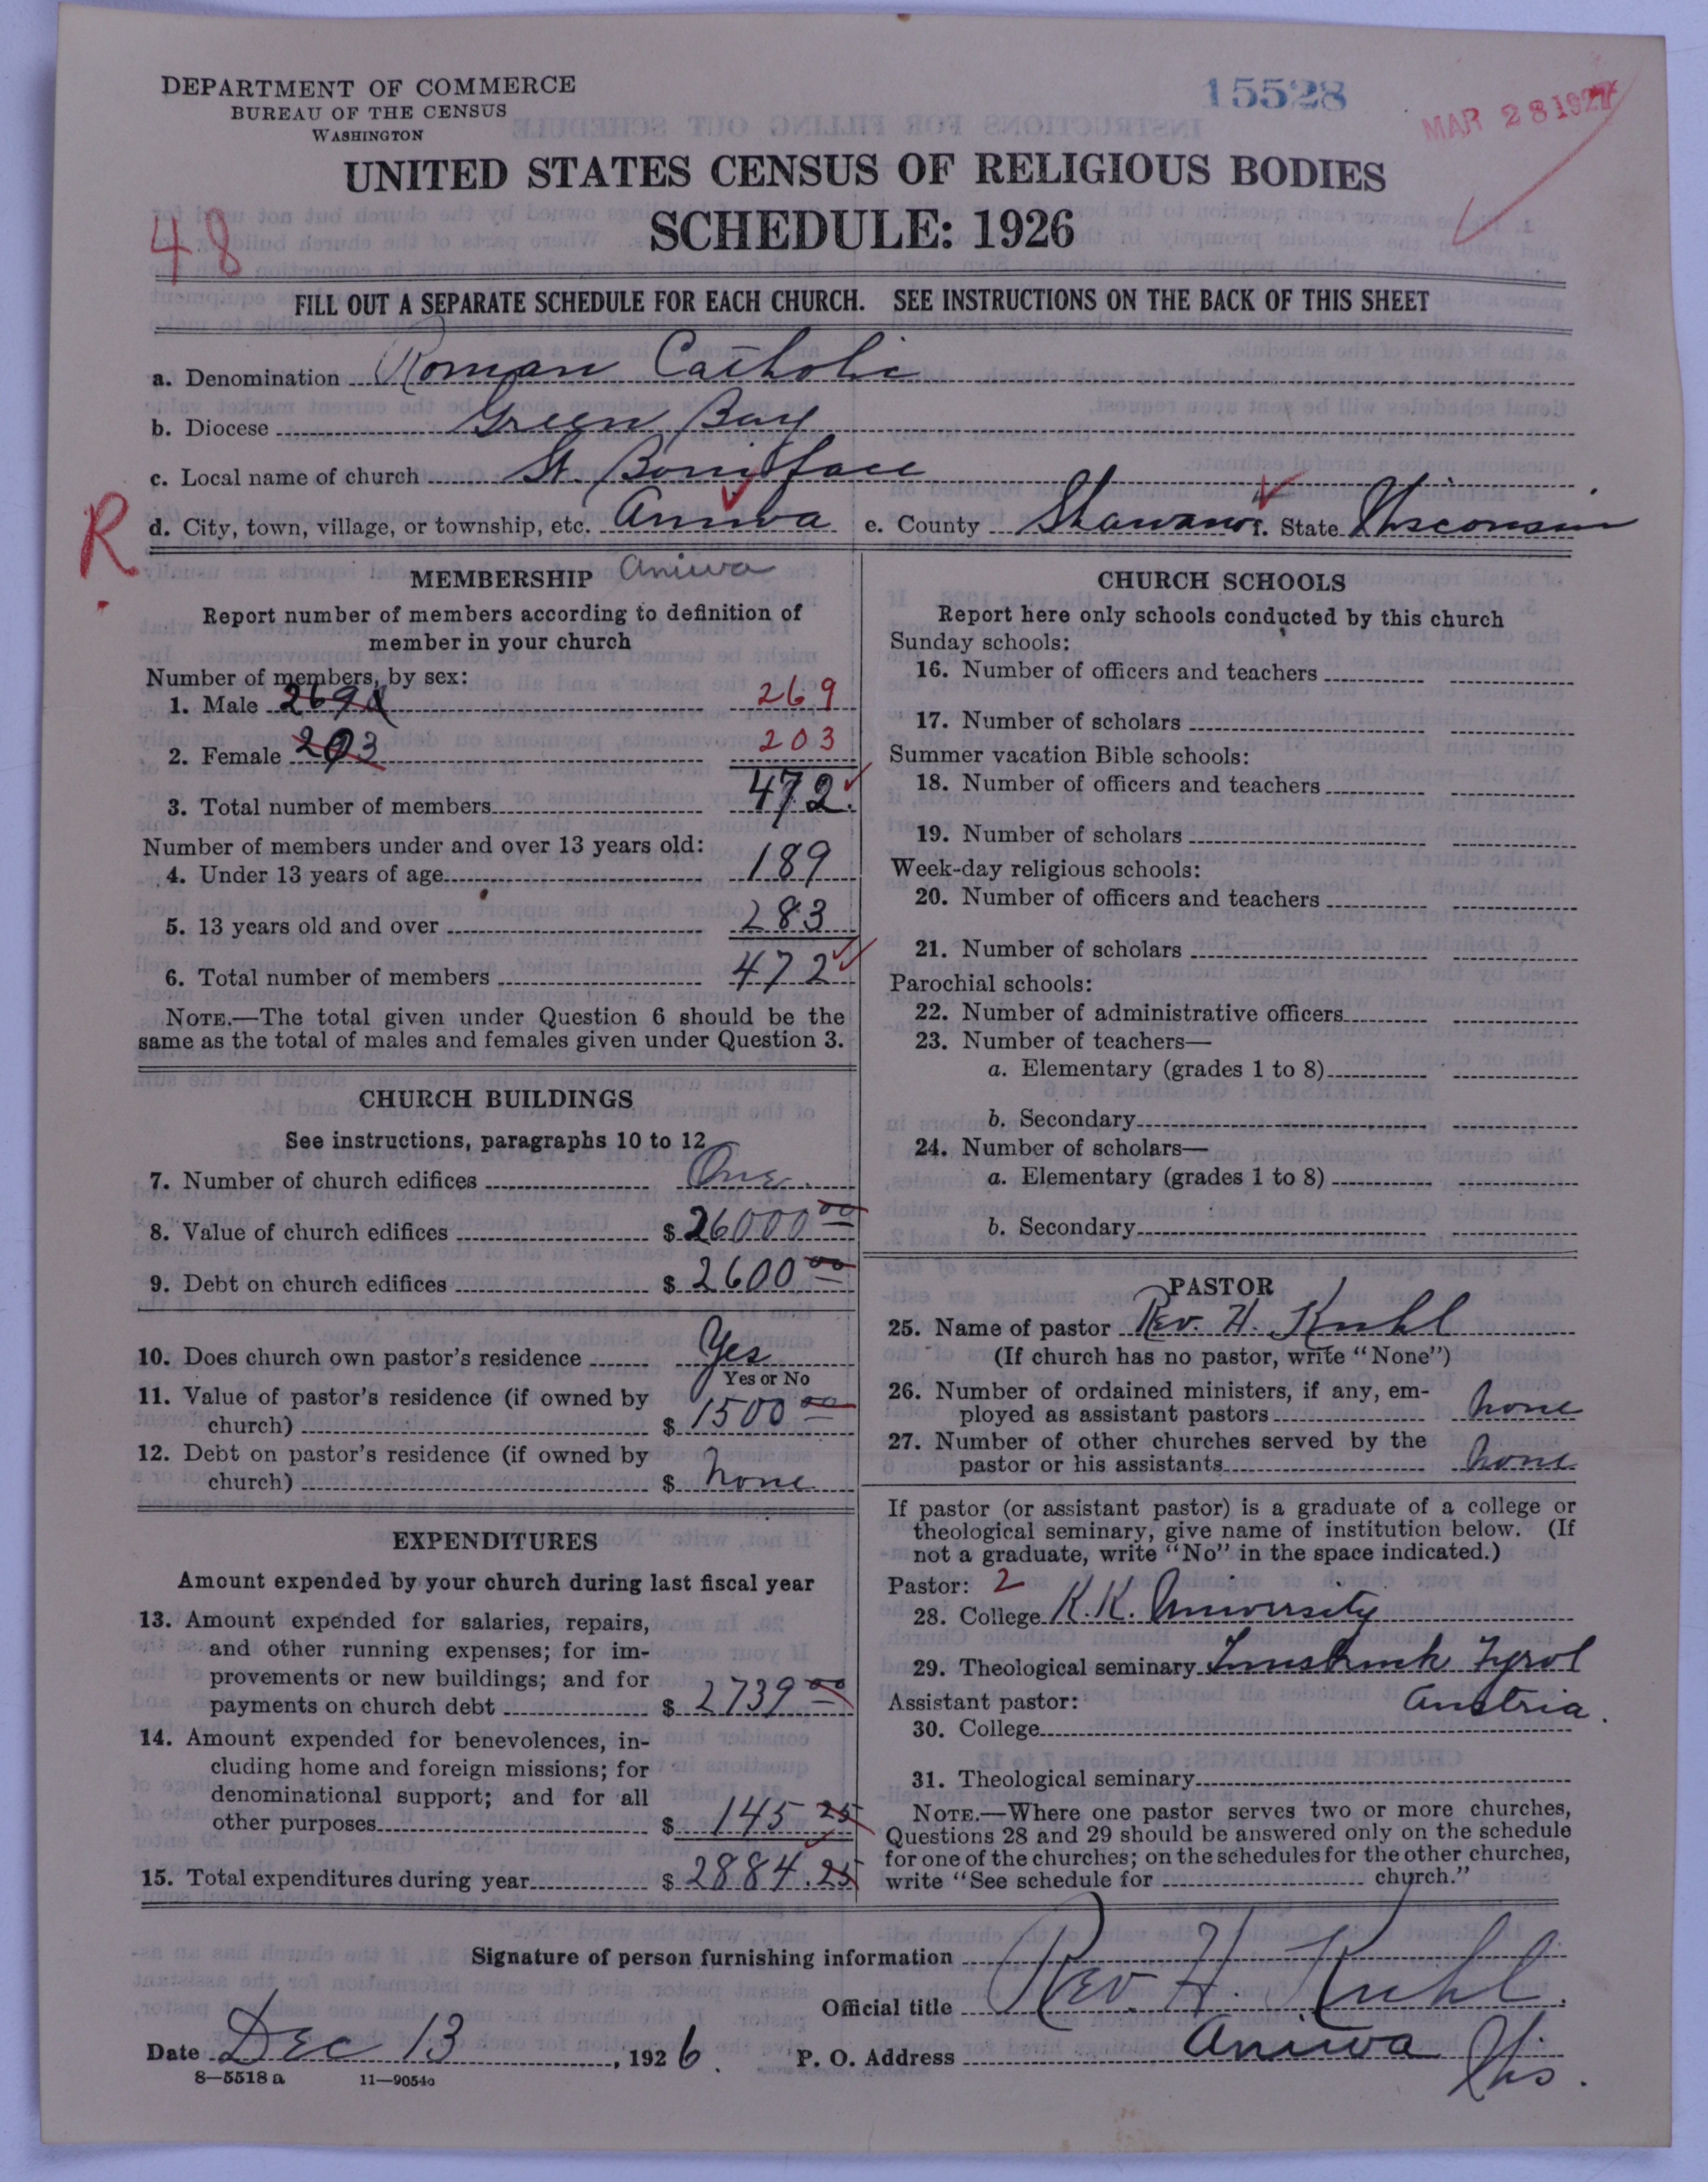 DEPARTMENT OF COMMERCE
BUREAU OF THE CENSUS
WASHINGTON
15528
MAR 28 1927
UNITED STATES CENSUS OF RELIGIOUS BODIES
SCHEDULE: 1926
48
FILL OUT A SEPARATE SCHEDULE FOR EACH CHURCH. SEE INSTRUCTIONS ON THE BACK OF THIS SHEET
a. Denomination Roman Catholic
b. Diocese Green Bay
c. Local name of church St. Boniface
R.
d. City, town, village, or township, etc. Aniwa e. County Shawano f. State Wisconsin
MEMBERSHIP Aniwa
Report number of members according to definition of
member in your church
Number of members, by sex:
1. Male 269 269
2. Female 203 203
3. Total number of members 472.
Number of members under and over 13 years old:
4. Under 13 years of age 189
5. 13 years old and over 283
6. Total number of members 472
NOTE.—The total given under Question 6 should be the
same as the total of males and females given under Question 3.
CHURCH BUILDINGS
See instructions, paragraphs 10 to 12
7. Number of church edifices One.
8. Value of church edifices $ 26000 00
9. Debt on church edifices $ 2600 00
10. Does church own pastor's residence Yes
Yes or No
11. Value of pastor's residence (if owned by
church) $ 1500 00
12. Debt on pastor's residence (if owned by
church) $ none
EXPENDITURES
Amount expended by your church during last fiscal year
13. Amount expended for salaries, repairs,
and other running expenses; for im-
provements or new buildings; and for
payments on church debt $ 2739 00
14. Amount expended for benevolences, in-
cluding home and foreign missions; for
denominational support; and for all
other purposes $ 145 25
15. Total expenditures during year $ 2884.25
CHURCH SCHOOLS
Report here only schools conducted by this church
Sunday schools:
16. Number of officers and teachers
17. Number of scholars
Summer vacation Bible schools:
18. Number of officers and teachers
19. Number of scholars
Week-day religious schools:
20. Number of officers and teachers
21. Number of scholars
Parochial schools:
22. Number of administrative officers
23. Number of teachers—
a. Elementary (grades 1 to 8)
b. Secondary
24. Number of scholars—
a. Elementary (grades 1 to 8)
b. Secondary
PASTOR
25. Name of pastor Rev. H. Kuhl
(If church has no pastor, write "None")
26. Number of ordained ministers, if any, em-
ployed as assistant pastors none
27. Number of other churches served by the
pastor or his assistants none
If pastor (or assistant pastor) is a graduate of a college or
theological seminary, give name of institution below. (If
not a graduate, write "No" in the space indicated.)
Pastor: 2
28. College K.K. University
29. Theological seminary Innsbruck Tyrol
Austria.
Assistant pastor:
30. College
31. Theological seminary
NOTE.—Where one pastor serves two or more churches,
Questions 28 and 29 should be answered only on the schedule
for one of the churches; on the schedules for the other churches,
write "See schedule for church."
Signature of person furnishing information Rev. H. Kuhl.
Official title
Date Dec 13, 1926. P. O. Address Aniwa Wis.
8—5518 a 11—9054o